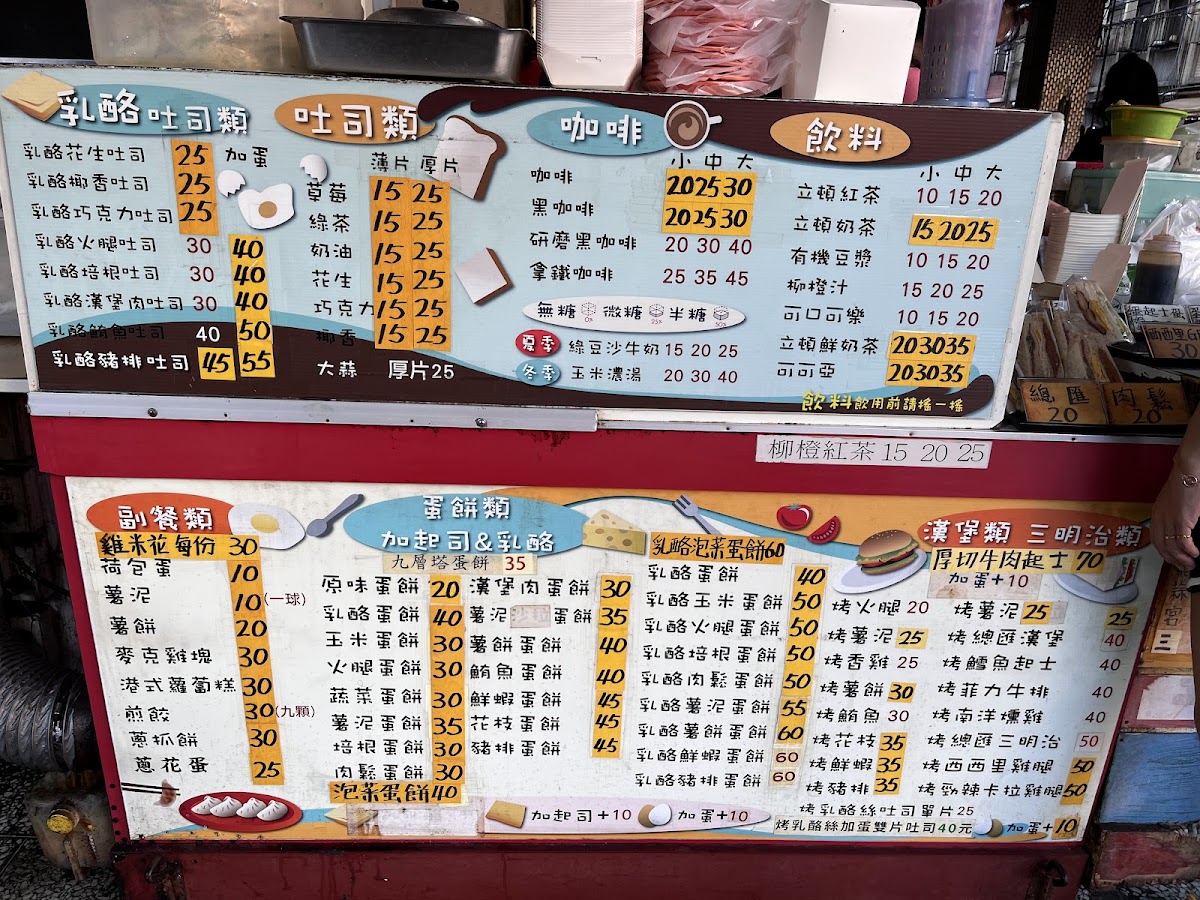 乳酪吐司類
乳酪花生吐司 25 加蛋
乳酪椰香吐司 25
乳酪巧克力吐司 25
乳酪火腿吐司 30 40
乳酪培根吐司 30 40
乳酪漢堡肉吐司 30 40
乳酪鮪魚吐司 40 50
乳酪豬排吐司 45 55
吐司類
薄片 厚片
草莓 15 25
綠茶 15 25
奶油 15 25
花生 15 25
巧克力 15 25
椰香 15 25
大蒜 厚片25
咖啡
小 中 大
咖啡 20 25 30
黑咖啡 20 25 30
研磨黑咖啡 20 30 40
拿鐵咖啡 25 35 45
無糖 0% 微糖 25% 半糖 50%
夏季 綠豆沙牛奶 15 20 25
冬季 玉米濃湯 20 30 40
飲料
小 中 大
立頓紅茶 10 15 20
立頓奶茶 15 20 25
有機豆漿 10 15 20
柳橙汁 15 20 25
可口可樂 10 15 20
立頓鮮奶茶 20 30 35
可可亞 20 30 35
飲料飲用前請搖一搖
總匯 20
肉鬆 20
柳橙紅茶 15 20 25
副餐類
雞米花每份 30
荷包蛋 10
薯泥 10 (一球)
薯餅 20
麥克雞塊 30
港式蘿蔔糕 30
煎餃 30 (九顆)
蔥抓餅 30
蔥花蛋 25
蛋餅類
加起司&乳酪
九層塔蛋餅 35
原味蛋餅 20
乳酪蛋餅 40
玉米蛋餅 30
火腿蛋餅 30
蔬菜蛋餅 30
薯泥蛋餅 35
培根蛋餅 30
肉鬆蛋餅 30
泡菜蛋餅 40
漢堡肉蛋餅 30
薯泥蛋餅 35
薯餅蛋餅 40
鮪魚蛋餅 40
鮮蝦蛋餅 45
花枝蛋餅 45
豬排蛋餅 45
乳酪泡菜蛋餅 60
乳酪蛋餅 40
乳酪玉米蛋餅 50
乳酪火腿蛋餅 50
乳酪培根蛋餅 50
乳酪肉鬆蛋餅 50
乳酪薯泥蛋餅 55
乳酪薯餅蛋餅 60
乳酪鮮蝦蛋餅 60
乳酪豬排蛋餅 60
加起司+10 加蛋+10
漢堡類 三明治類
厚切牛肉起士 70
加蛋+10
烤火腿 20
烤薯泥 25
烤香雞 25
烤薯餅 30
烤鮪魚 30
烤花枝 35
烤鮮蝦 35
烤豬排 35
烤薯泥 25 25
烤總匯漢堡 40
烤鱈魚起士 40
烤菲力牛排 40
烤南洋燻雞 40
烤總匯三明治 50
烤西西里雞腿 50
烤勁辣卡拉雞腿 50
烤乳酪絲吐司單片 25
烤乳酪絲加蛋雙片吐司 40元 加蛋+10